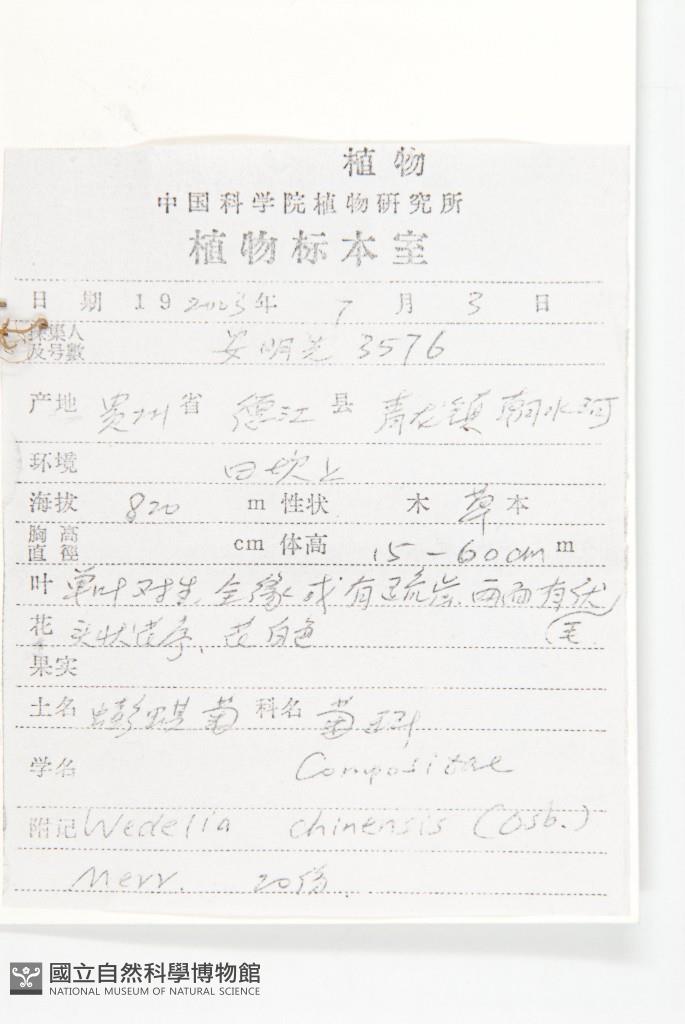 植物
中国科学院植物研究所
植物标本室
日期 19 2003年 7月 3日
採集人及号數 安明先 3576
产地 贵州省 德江县 青龙镇 朝水河
环境 田坎上
海拔 820 m 性状 木 草本
胸高直徑 cm 体高 15-60cm m
叶 单叶对生,全缘或有疏齿.两面有伏毛
花 头状花序、花白色
果实
土名 蟛蜞菊 科名 菊科
学名 Compositae
附记 Wedelia chinensis (Osb.)
Merr. 20份
國立自然科學博物館
NATIONAL MUSEUM OF NATURAL SCIENCE